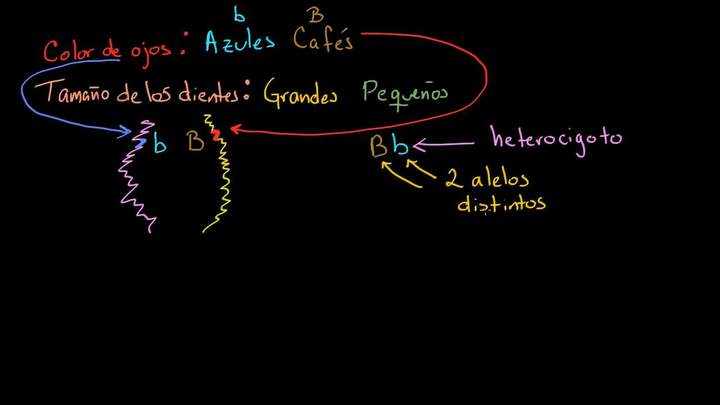 b B
Color de ojos: Azules Cafés
Tamaño de los dientes: Grandes Pequeños
b B
Bb heterocigoto
2 alelos
distintos